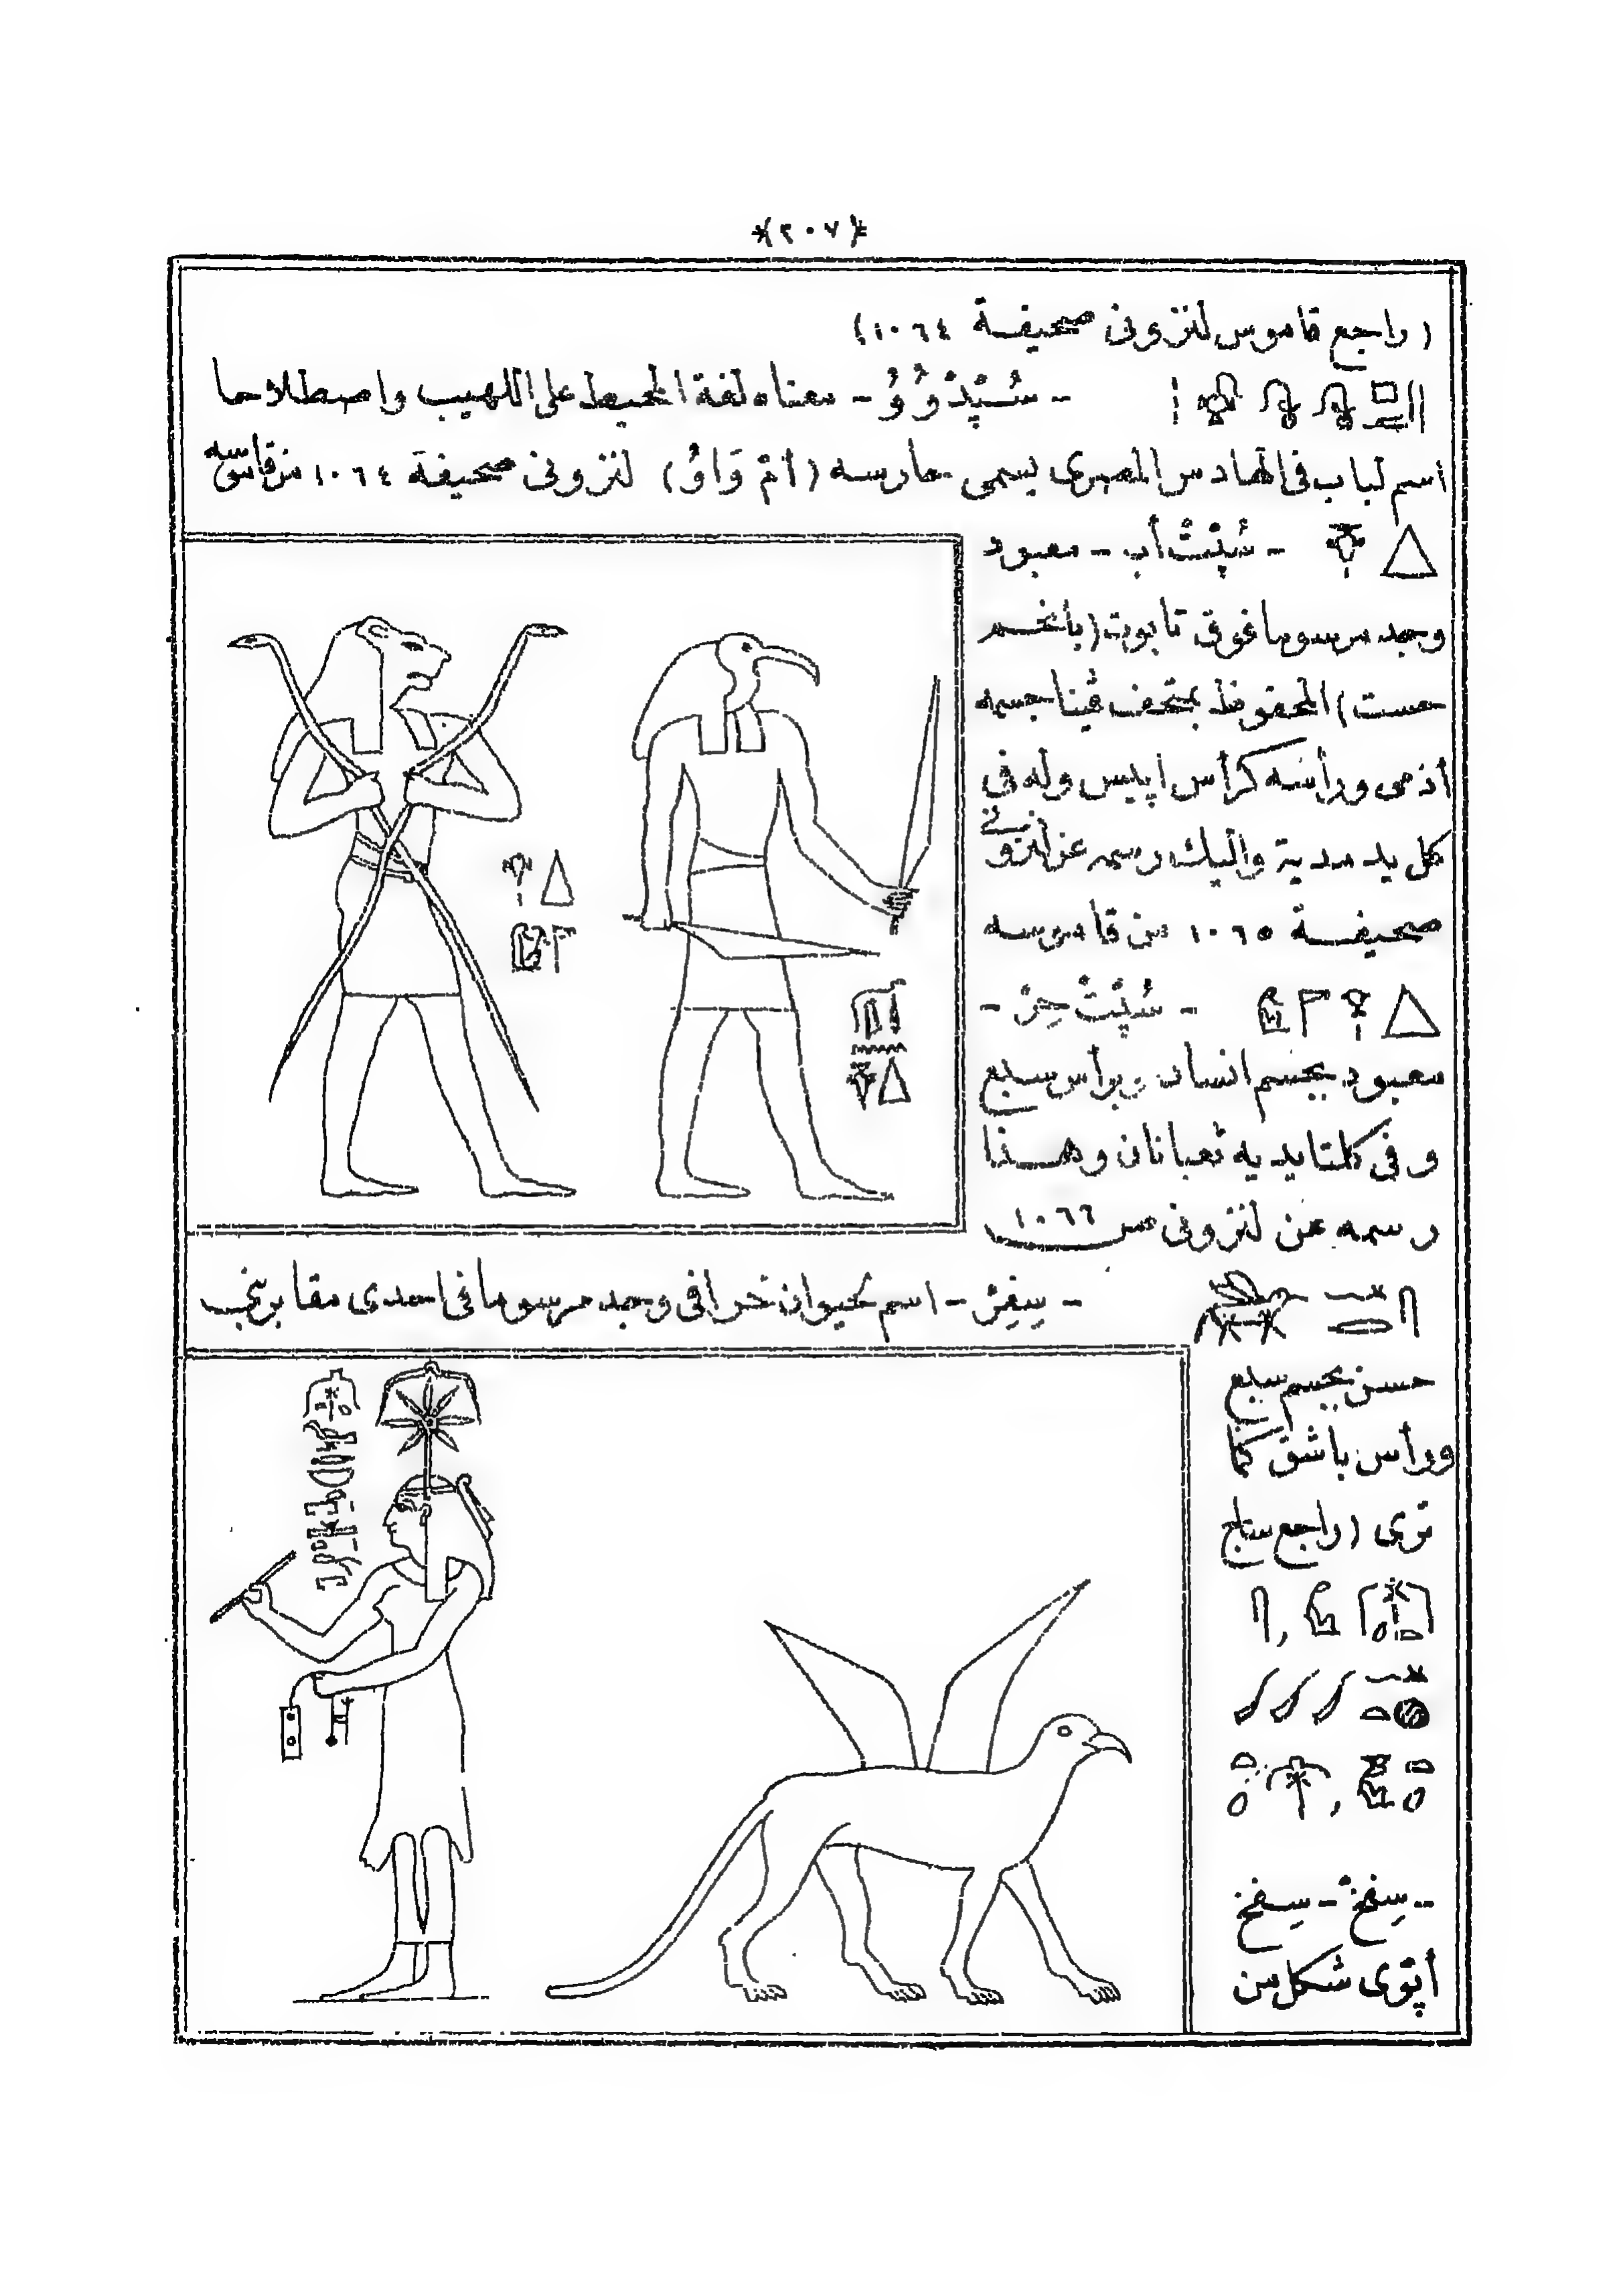 *(٢٠٧)*
(راجع قاموس لنزونى صحيفة ١٠٦٤)
- سُپْدْوُوُ - معناه لغة المحيط على اللهيب واصطلاحا
اسم لباب فى الهادس المصرى يسمى حارسه (أمْ وَاوُ) لنزونى صحيفة ١٠٦٤ من قاموسه
- سُپْتْ أب - معبود
وجد مرسوما فوق تابوت (بانخم
حست) المحفوظ بمتحف ڤينا جسمه
أدمى ورأسه كرأس اپيس وله فى
كل يد مدية واليك رسمه عن لنزونى
صحيفة ١٠٦٥ من قاموسه
- سُپْتْ حِرْ -
معبود بجسم انسان وبرأس سبع
وفى كلتا يديه ثعبانان وهذا
رسمه عن لنزونى ص ١٠٦٦
- سِفِرْ - اسم لحيوان خرافى وجد مرسوما فى احدى مقابر بنى
حسن بجسم سبع
ورأس باشق كما
ترى (راجع ستلج
- سِفخْ - سِفخ
أپوى شكل من